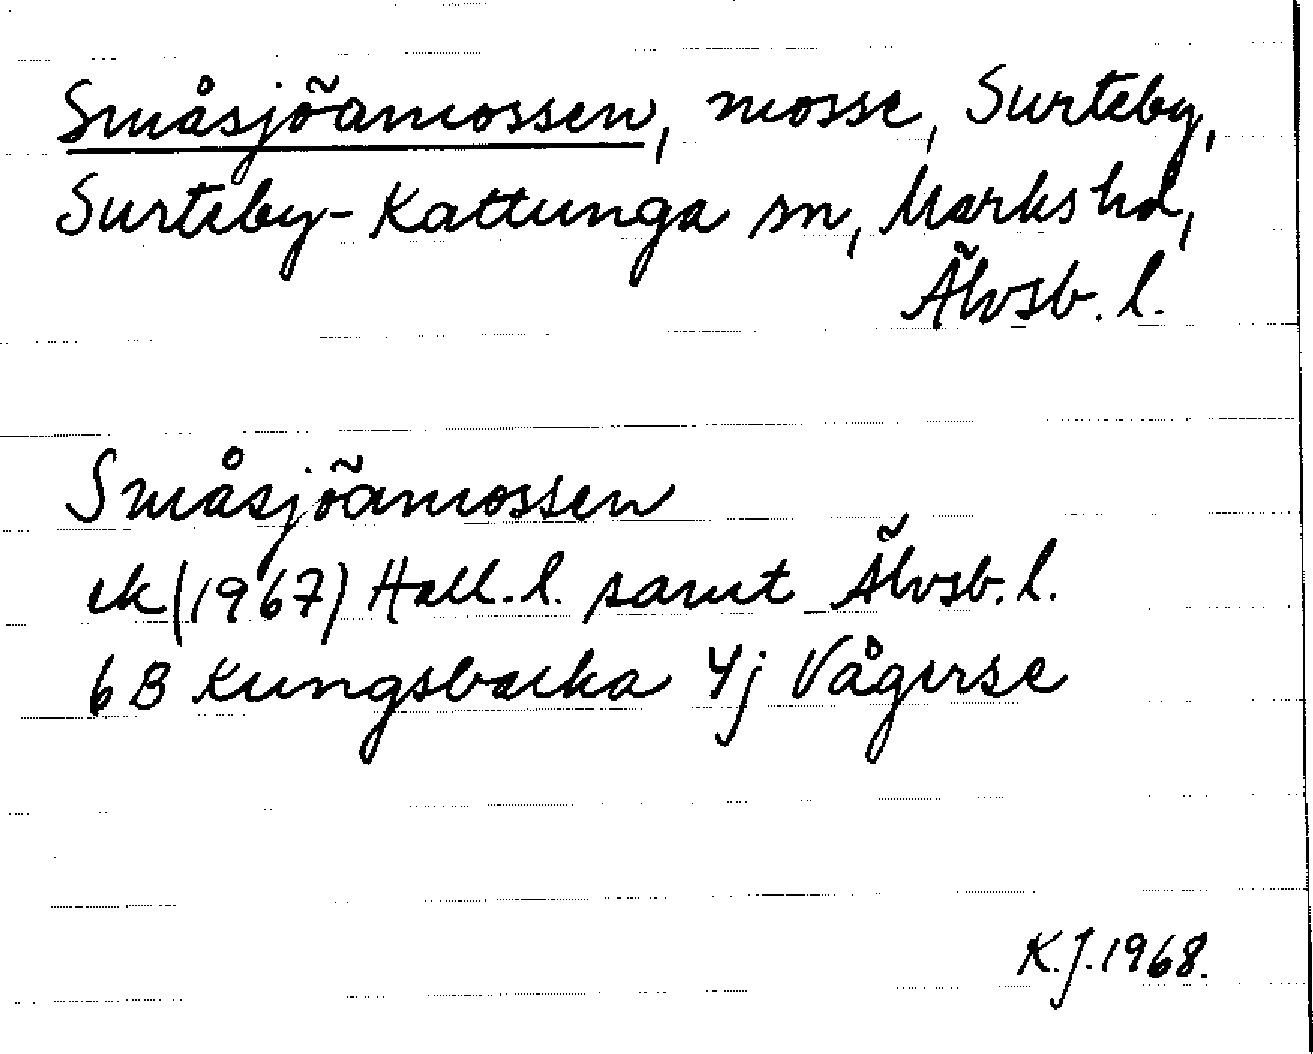 Småsjöamossen, mosse, Surteby,
Surteby-Kattunga sn, Marks hd,
Älvsb. l.
Småsjöamossen
ek (1967) Hall. l. samt Älvsb. l.
6B Kungsbacka 4j Vågerse
K.J. 1968.